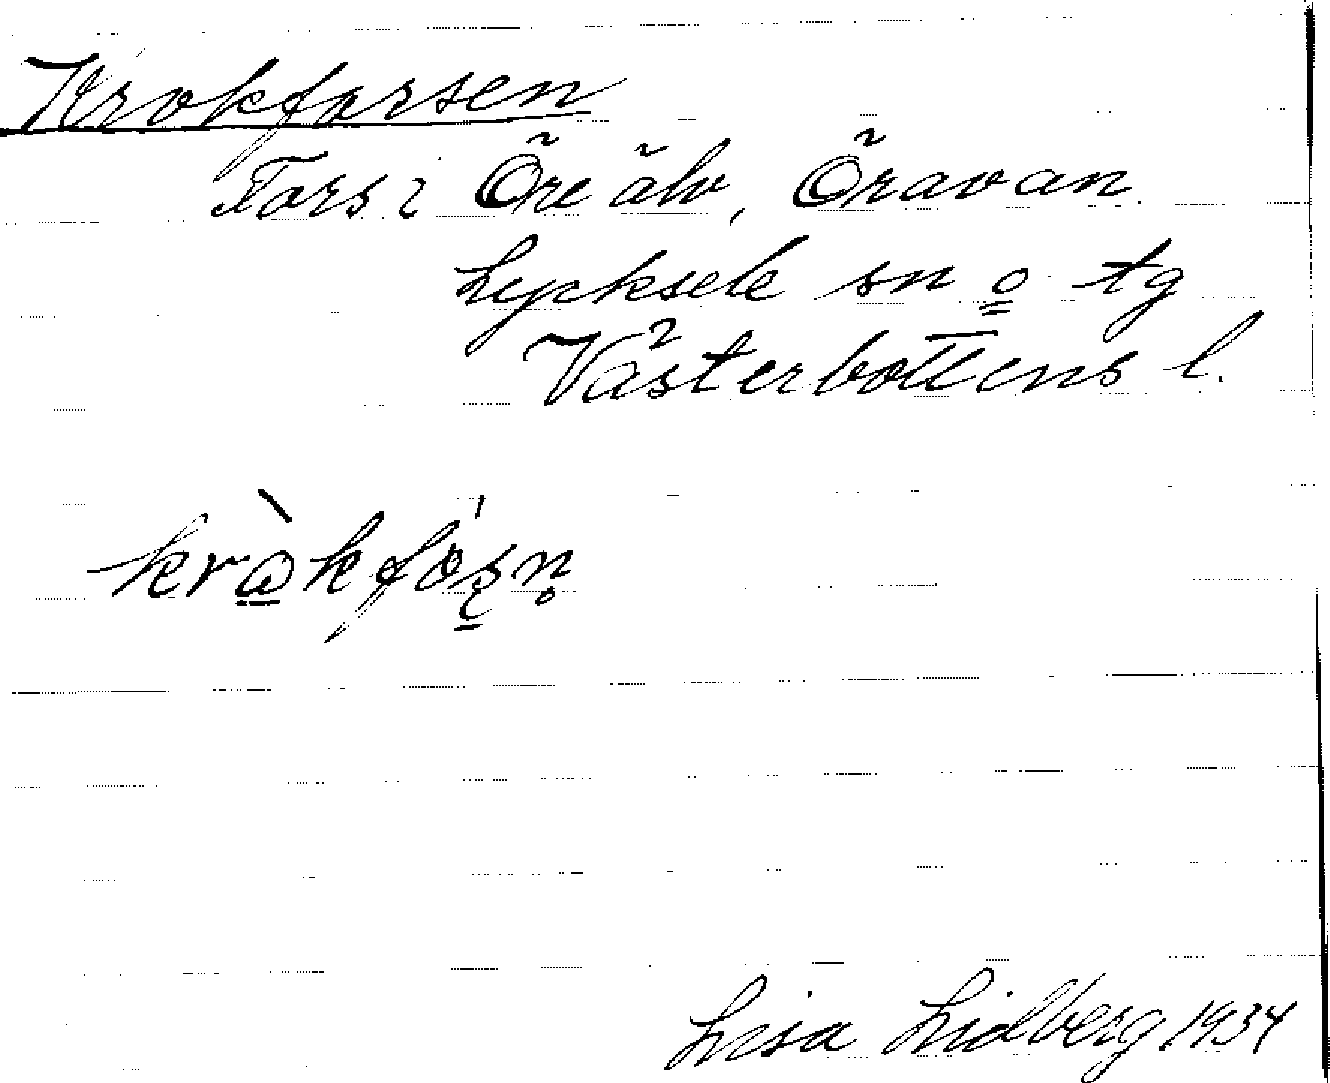 Krokforsen
Fors i Öre älv, Öravan
Lycksele sn o tg
Västerbottens l.
kròkfórsn̥
Lisa Lidberg 1934